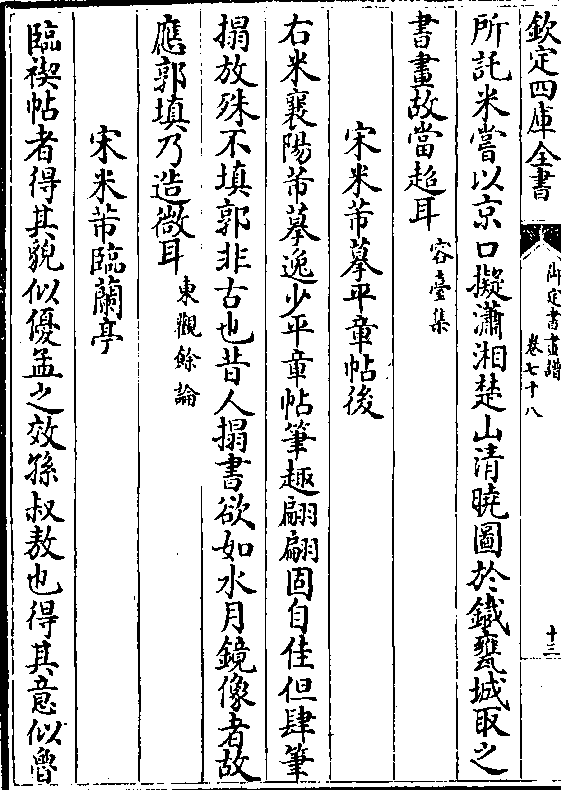 欽定四庫全書
御定書畫譜
卷七十八
十三
所託米嘗以京口擬瀟湘楚山清曉圖於鐵甕城取之
書畫故當超耳容臺集
宋米芾摹平章帖後
右米襄陽芾摹逸少平章帖筆趣翩翩固自佳但肆筆
搨放殊不填郭非古也昔人搨書欲如水月鏡像者故
應郭填乃造微耳東觀餘論
宋米芾臨蘭亭
臨禊帖者得其貌似優孟之效孫叔敖也得其意似魯